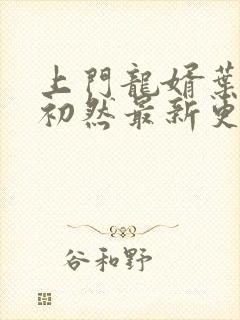 上門龍婿葉
初然最新更
谷和野